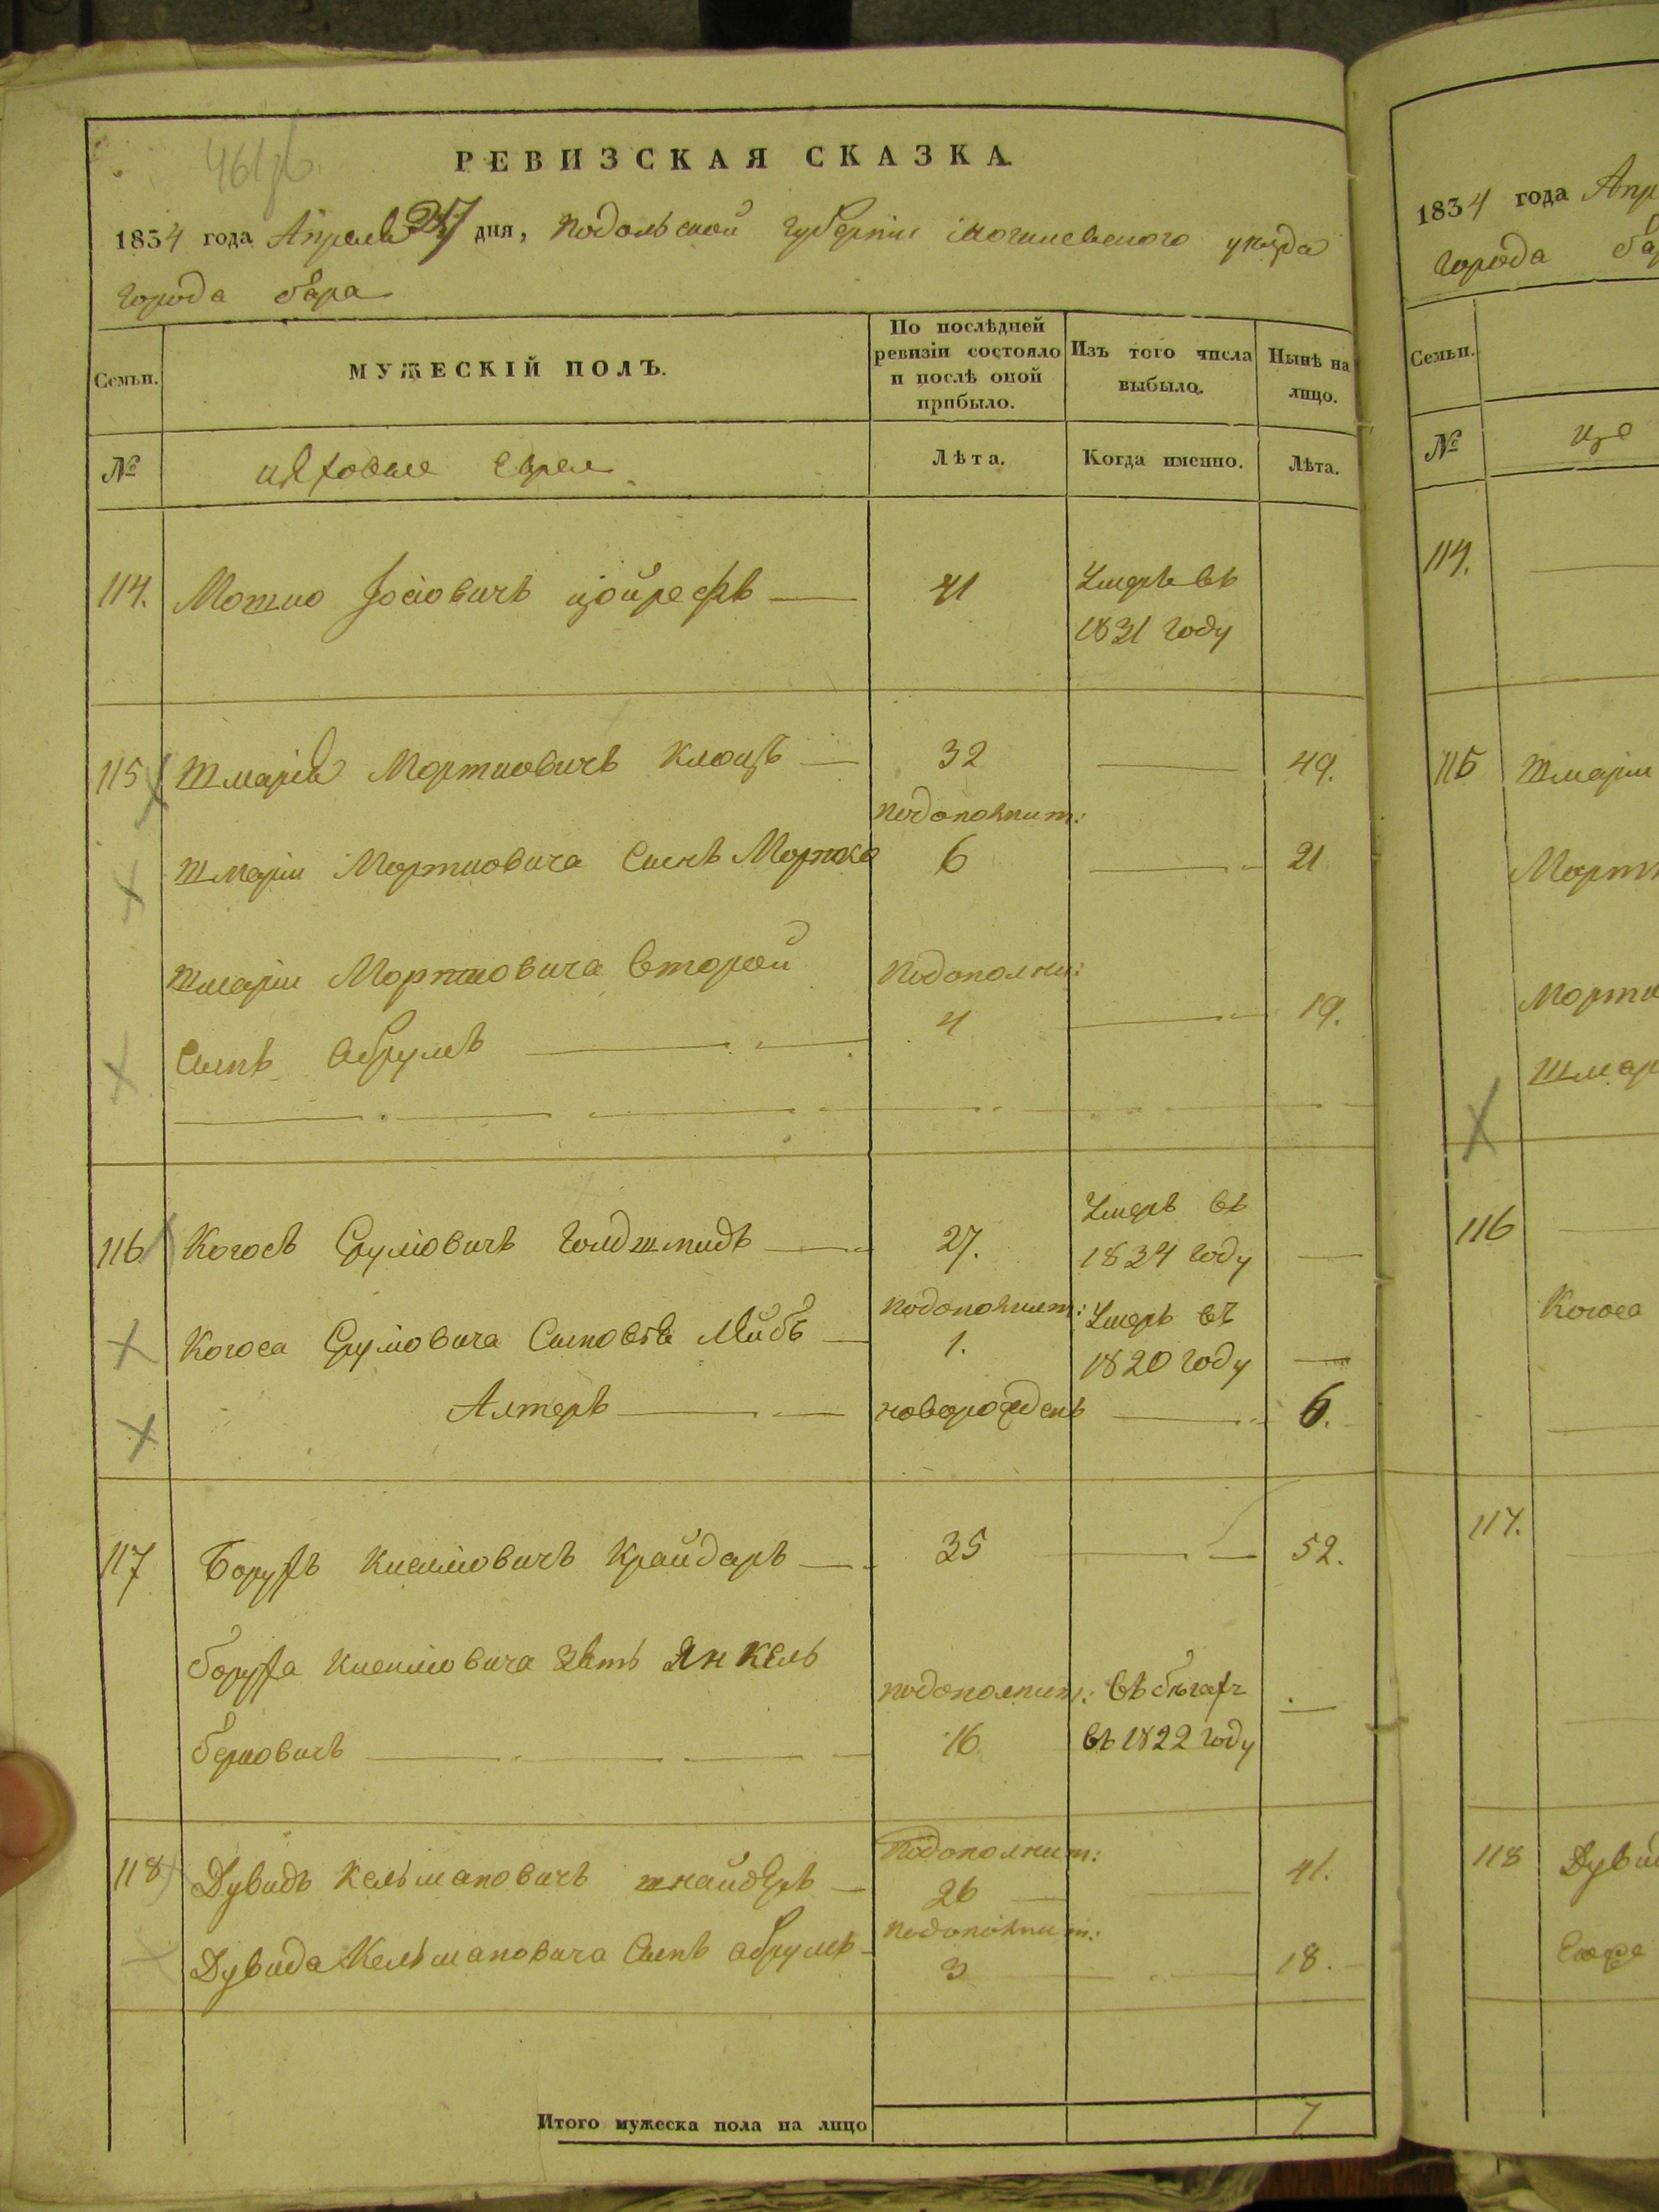 461 об.
РЕВИЗСКАЯ СКАЗКА.
1834 года Апреля 27 дня, Подольской губерніи могилевского уезда
города бара
Семьи.
МУЖЕСКІЙ ПОЛЪ.
По послѣдней ревизіи состояло и послѣ оной прибыло.
Изъ того числа выбыло.
Нынѣ на лицо.
№
цеховые евреи
Лѣта.
Когда именно.
Лѣта.
114. Мотио Іосіовичъ цойрефъ 41 Умеръ въ
1831 году
115 Шмарія Мортковичъ Клоцъ 32 49.
подополнит:
Шмаріи Мортковича Сынъ Мортко 6 21
Шмаріи Мортковича второй подополни:
Сынъ Абрумъ 4 19.
116 Когосъ Срулiовичъ Голдшмидъ 27. Умеръ въ
1834 году
подополнит: Умеръ въ
Когоса Срулiовича Сыновья Лейбъ 1. 1820 году
Алтеръ новорожденъ 6.
117 Борухъ Кисилiовичъ Крайдаръ 35 52.
боруха Кисилiовича Зять Янкель
подополнит: въ бегахъ
берковичъ 16. въ 1822 году
подополнит:
118 Дувидъ Кельмановичъ шнайдеръ 26 41.
подополнит:
Дувида Кельмановича Сынъ абрумъ 3 18.
Итого мужеска пола на лицо 7
1834 года Апр
города ба
Семьи.
№ це
114.
115 Шмаріи
Мортк
Мортк
Шмар
116
Когоса
117.
118 Дувид
Его же